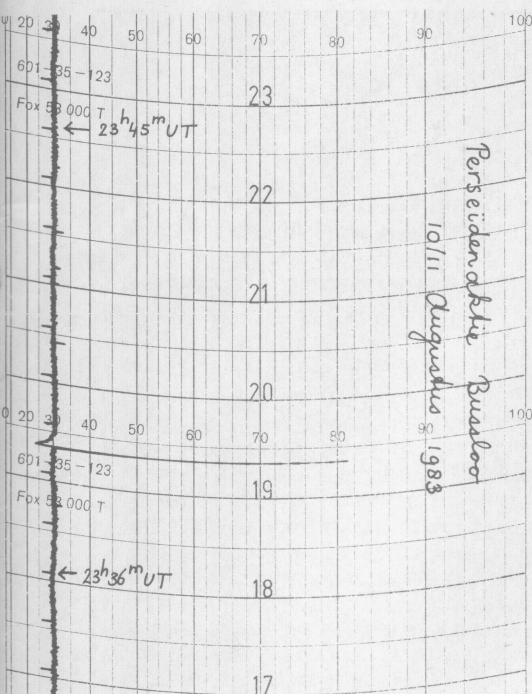 20 30 40 50 60 70 80 90 100
601-35-123
23
Fox 53 000 T
← 23h45m UT
22
21
20
0 20 30 40 50 60 70 80 90 100
601-35-123
19
Fox 53 000 T
← 23h36m UT
18
17
Perseïdenaktie Bussloo
10/11 Augustus 1983